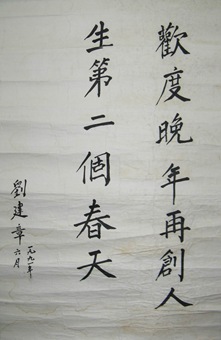 歡度晚年再創人
生第二個春天
劉建章
一九九一年
六月